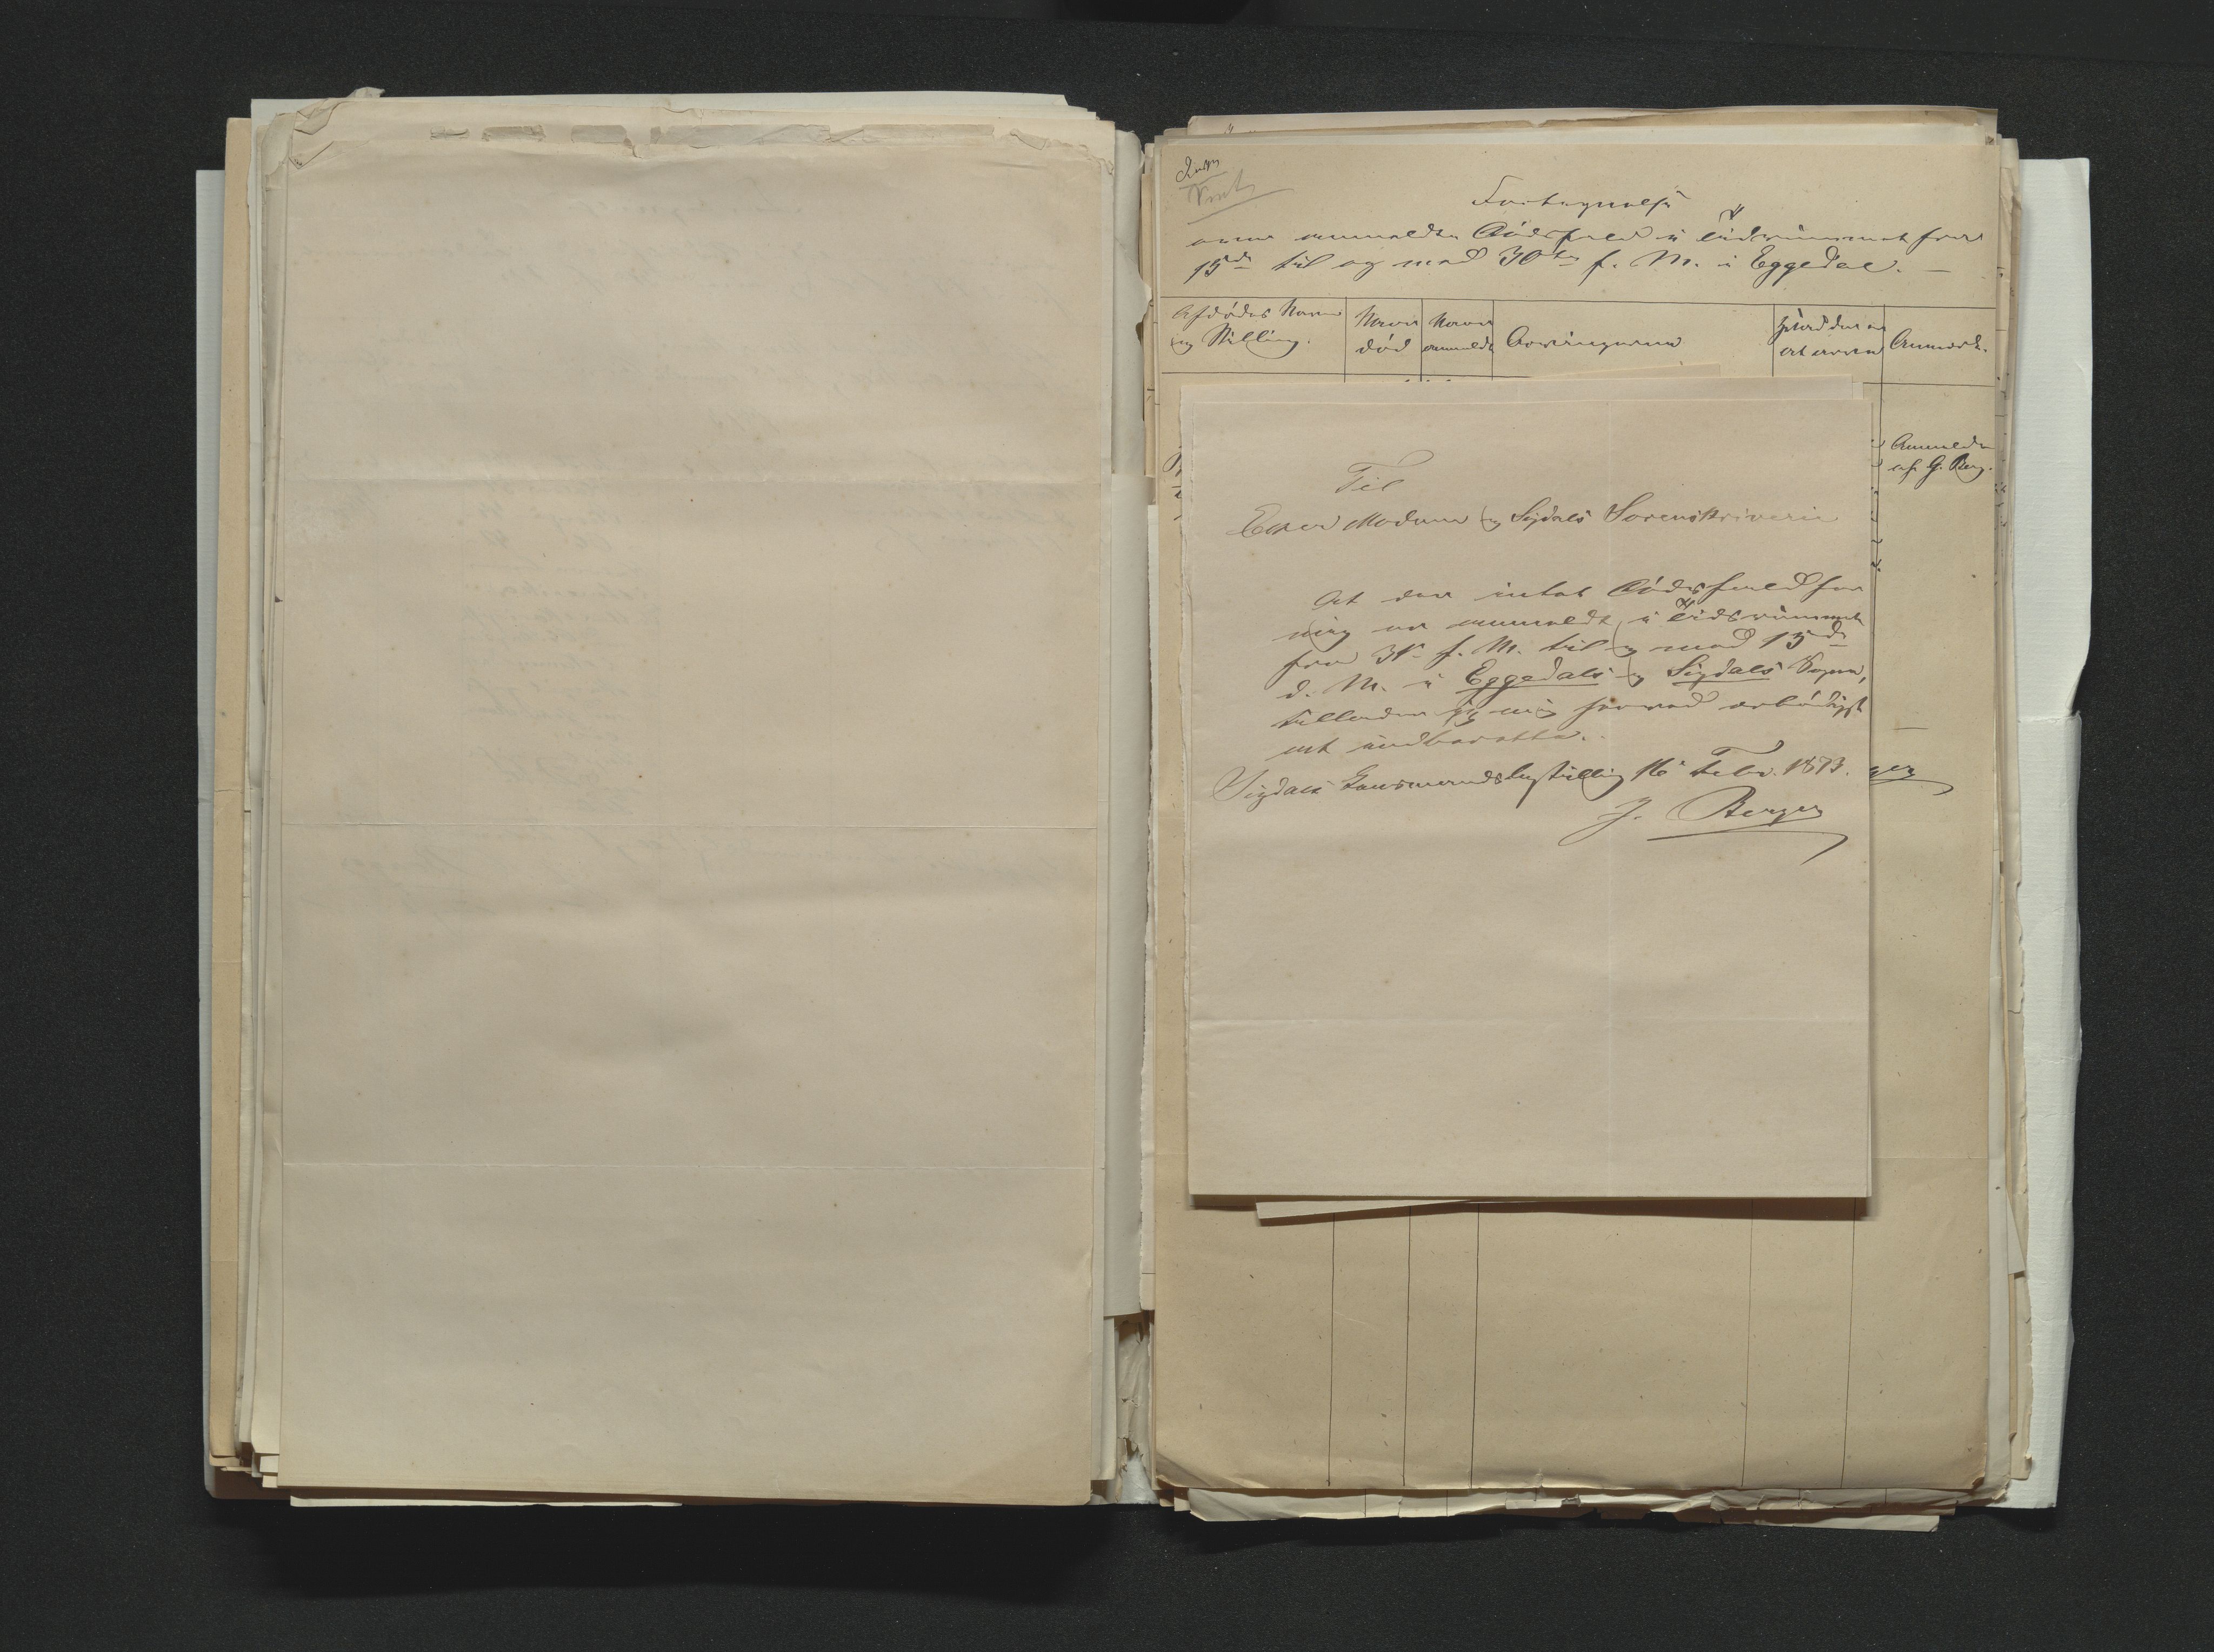 Fortegnelse
over anmeldte Dødsfald i Tidsrummet fra
15de til og med 30te f. M. i Eggedal. —
Afdødes Navn
og Stilling.
Naar
død
Naar
anmeldt
Arvingerne
Anmærk.
Anmeldt
af G. Berg.
Til
Eker Modum og Sigdals Sorenskriveri
At der intet Dødsfald for
mig er anmeldt i Tidsrummet
fra 31te f. M. til og med 15de
d. M. i Eggedals og Sigdals Sogne,
tillader jeg mig herved ærbødigst
at indberette.
Sigdals Lensmandsbestilling 16 Febr. 1873.
J. Berger